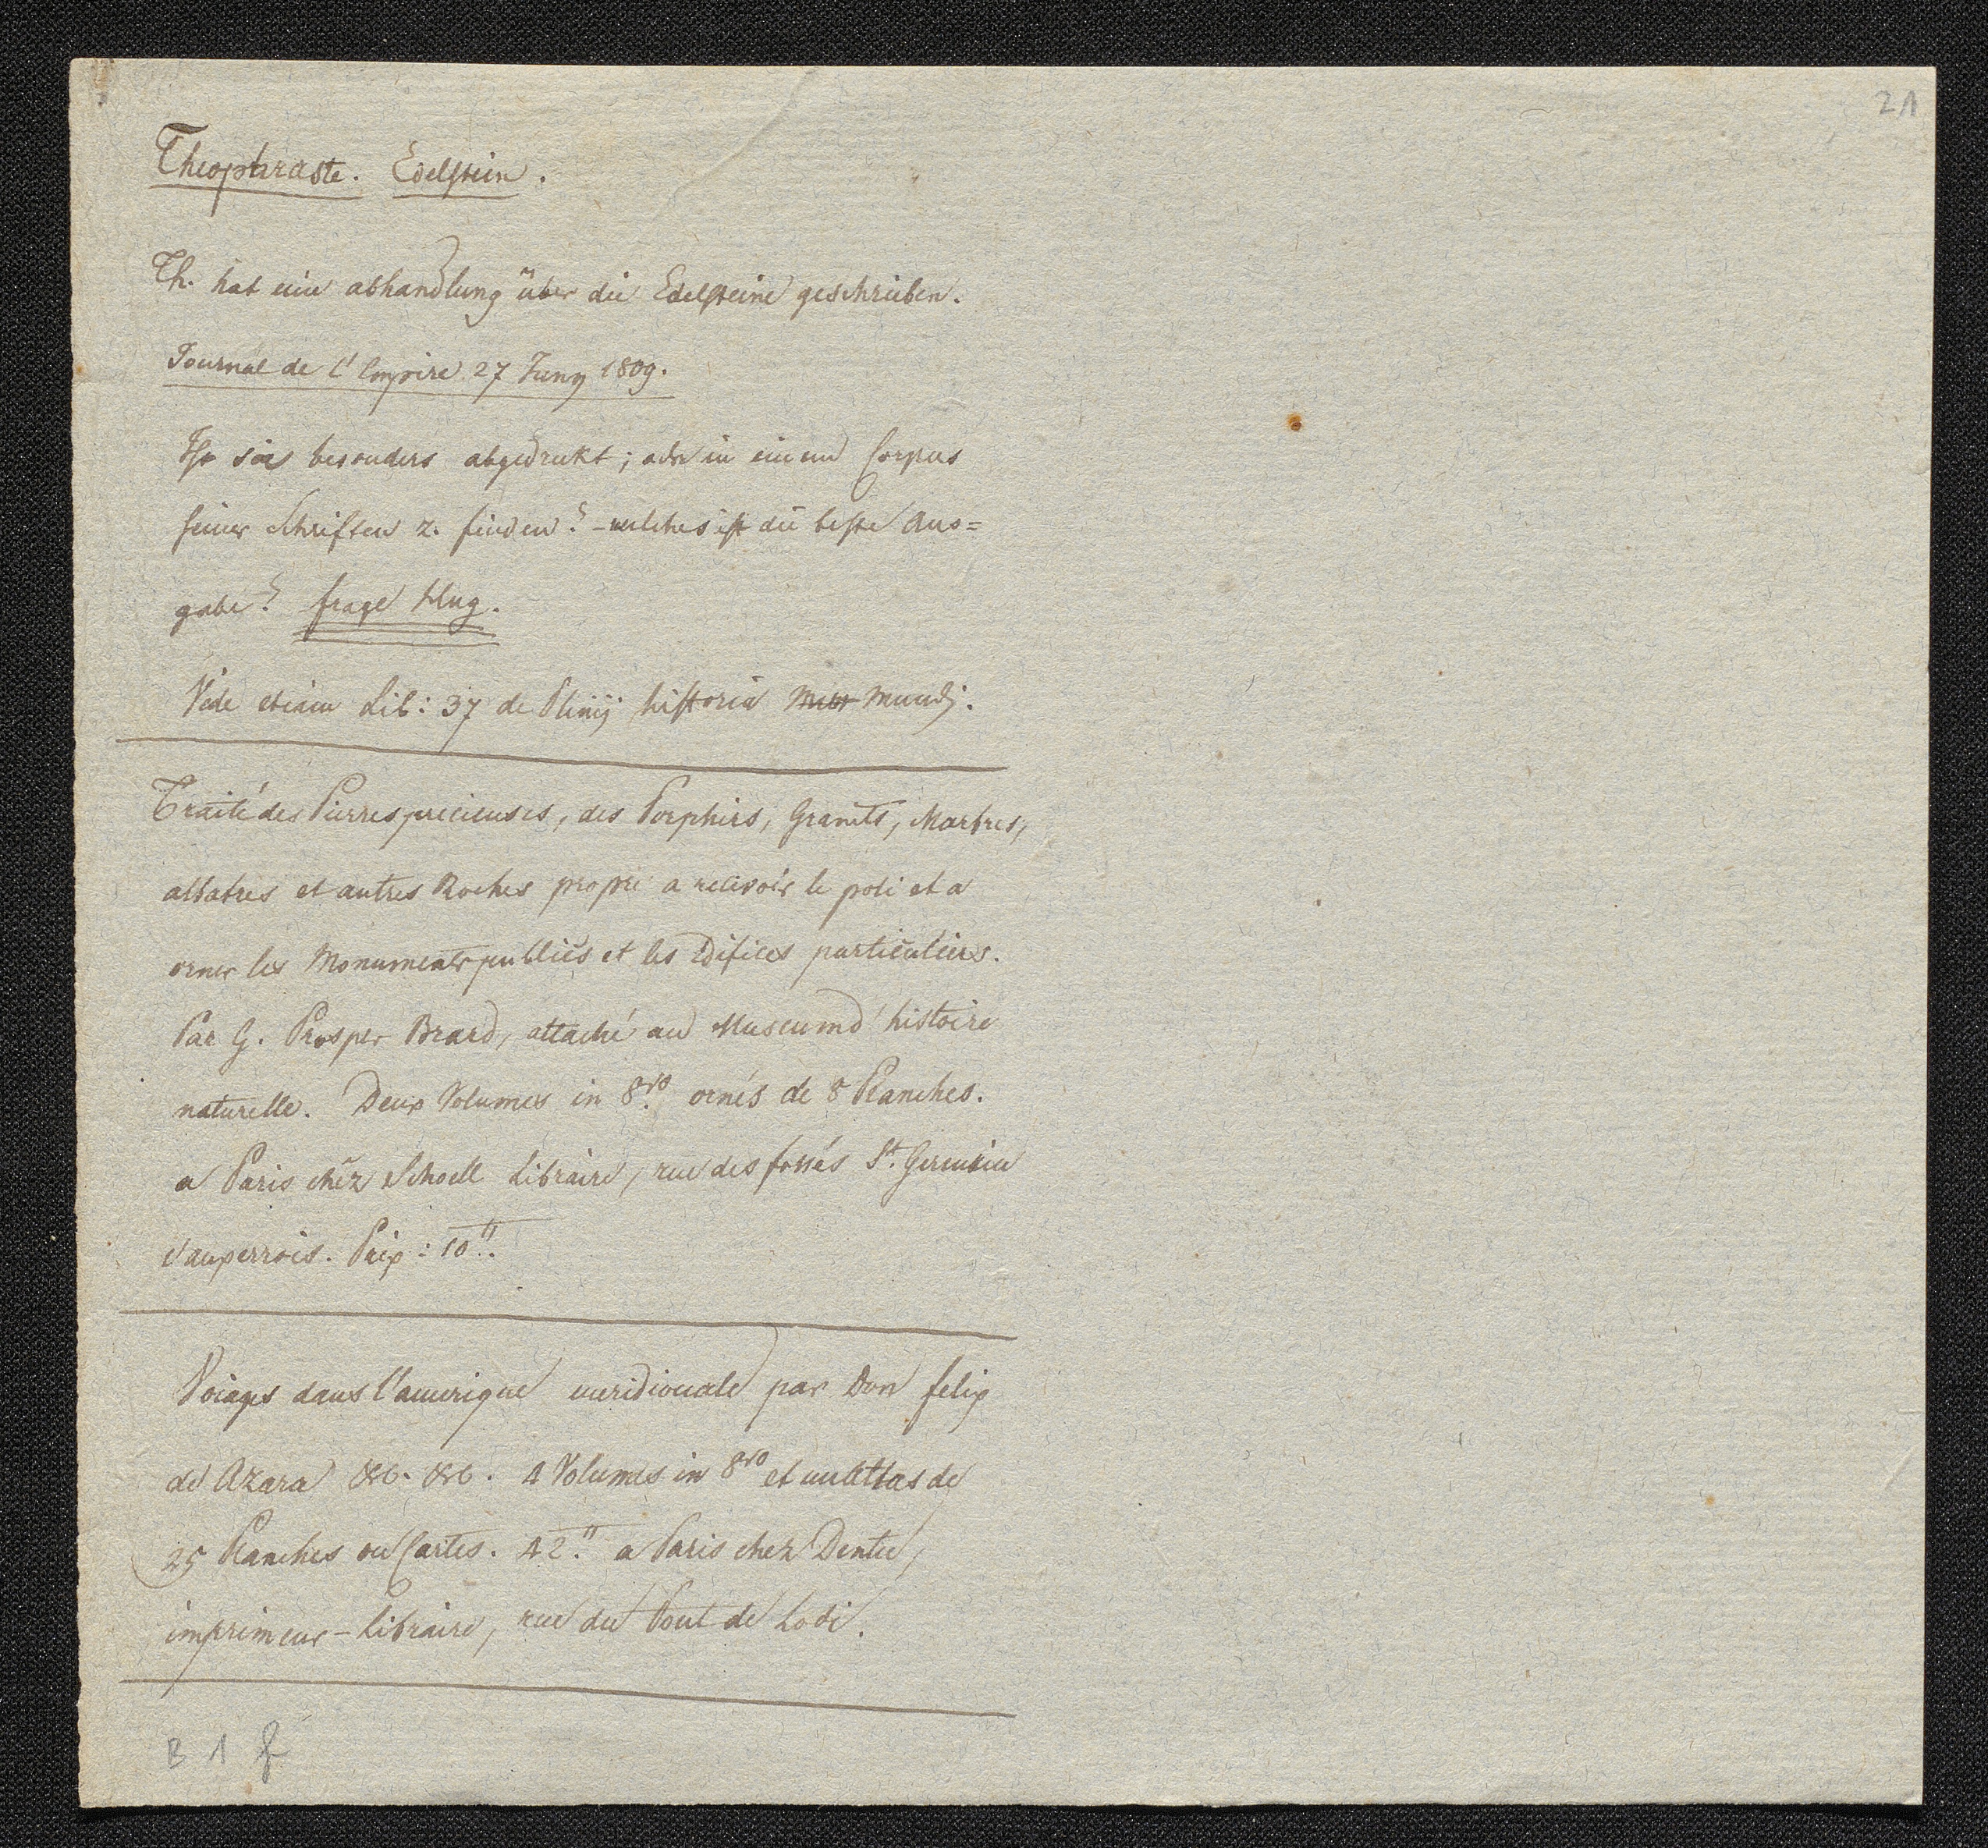 21
Theophraste. Edelstein.
Th. hat eine abhandlung über die Edelsteine geschrieben.
Journal de l'Empire 27 Juny 1809.
Ist sie besonders abgedrukt; oder in einem Corpus
seiner Schriften z. finden? - welches ist die beste Aus=
gabe? frage Hug.
Vide etiam Lib: 37 de Plinij historia Mundj.
Traité des Pierres precieuses, des Porphirs, Granits, Marbres,
albatres et autres Roches propre a recevoir le poli et a
orner les Monuments publics et les Edifices particuliers.
Par G. Prosper Brard, attaché au Museum d'histoire
naturelle. Deux Volumes in 8vo. ornés de 8 Planches.
a Paris chéz Schoell Libraire, rue des fossés St. Germain
l'auxerrois. Prix: 10.
Voiages dans l'amerique meridionale par Don felix
de Azara &c. &c. 4 Volumes in 8vo et un Atlas de
25 Planches ou Cartes. 42. a Paris chez Dentu,
imprimeur-Libraire, rue du Pont de Lodi.
B 1 f